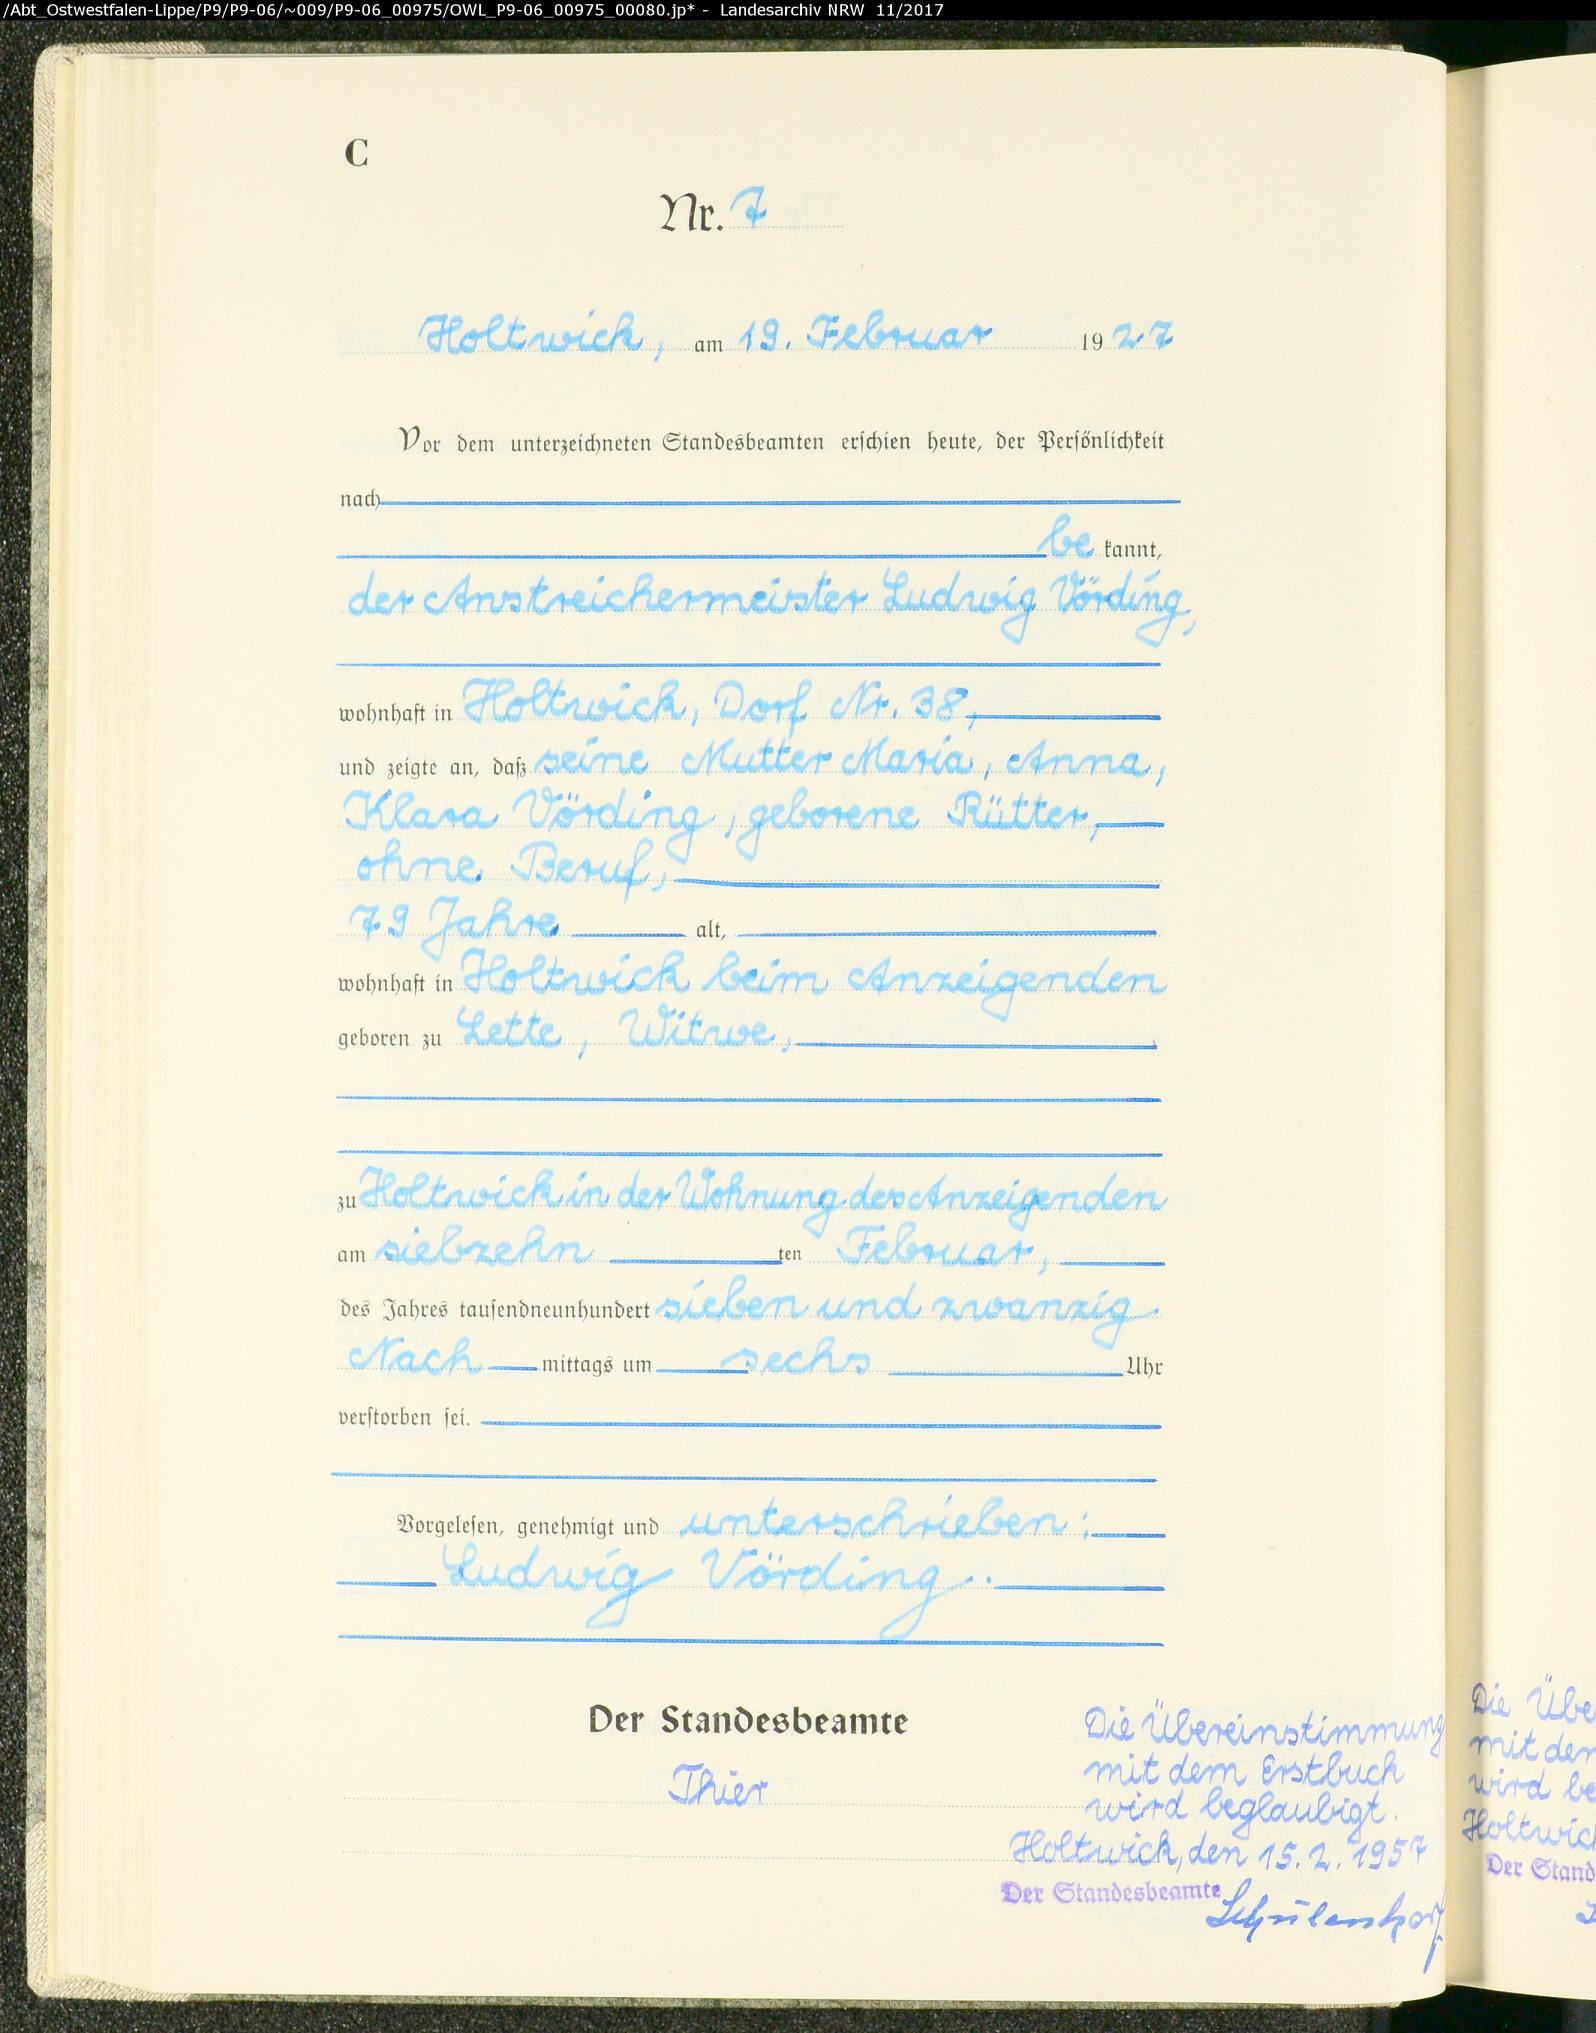 /Abt_Ostwestfalen-Lippe/P9/P9-06/~009/P9-06_00975/OWL_P9-06_00975_00080.jp* - Landesarchiv NRW 11/2017
C
Nr. 7
Holtwick, am 19. Februar 1927
Vor dem unterzeichneten Standesbeamten erschien heute, der Persönlichkeit
nach
be kannt,
der Anstreichermeister Ludwig Vörding,
wohnhaft in Holtwick, Dorf Nr. 38,
und zeigte an, daß seine Mutter Maria, Anna,
Klara Vörding, geborene Rütter,
ohne Beruf,
79 Jahre alt,
wohnhaft in Holtwick beim Anzeigenden
geboren zu Lette, Witwe,
zu Holtwick in der Wohnung des Anzeigenden
am siebzehn ten Februar,
des Jahres tausendneunhundert sieben und zwanzig
Nach mittags um sechs Uhr
verstorben sei.
Vorgelesen, genehmigt und unterschrieben:
Ludwig Vörding.
Der Standesbeamte
Thier
Die Übereinstimmung
mit dem Erstbuch
wird beglaubigt.
Holtwick, den 15.2.1957
Der Standesbeamte
Die Übe
mit dem
wird be
Holtwick
Der Stand